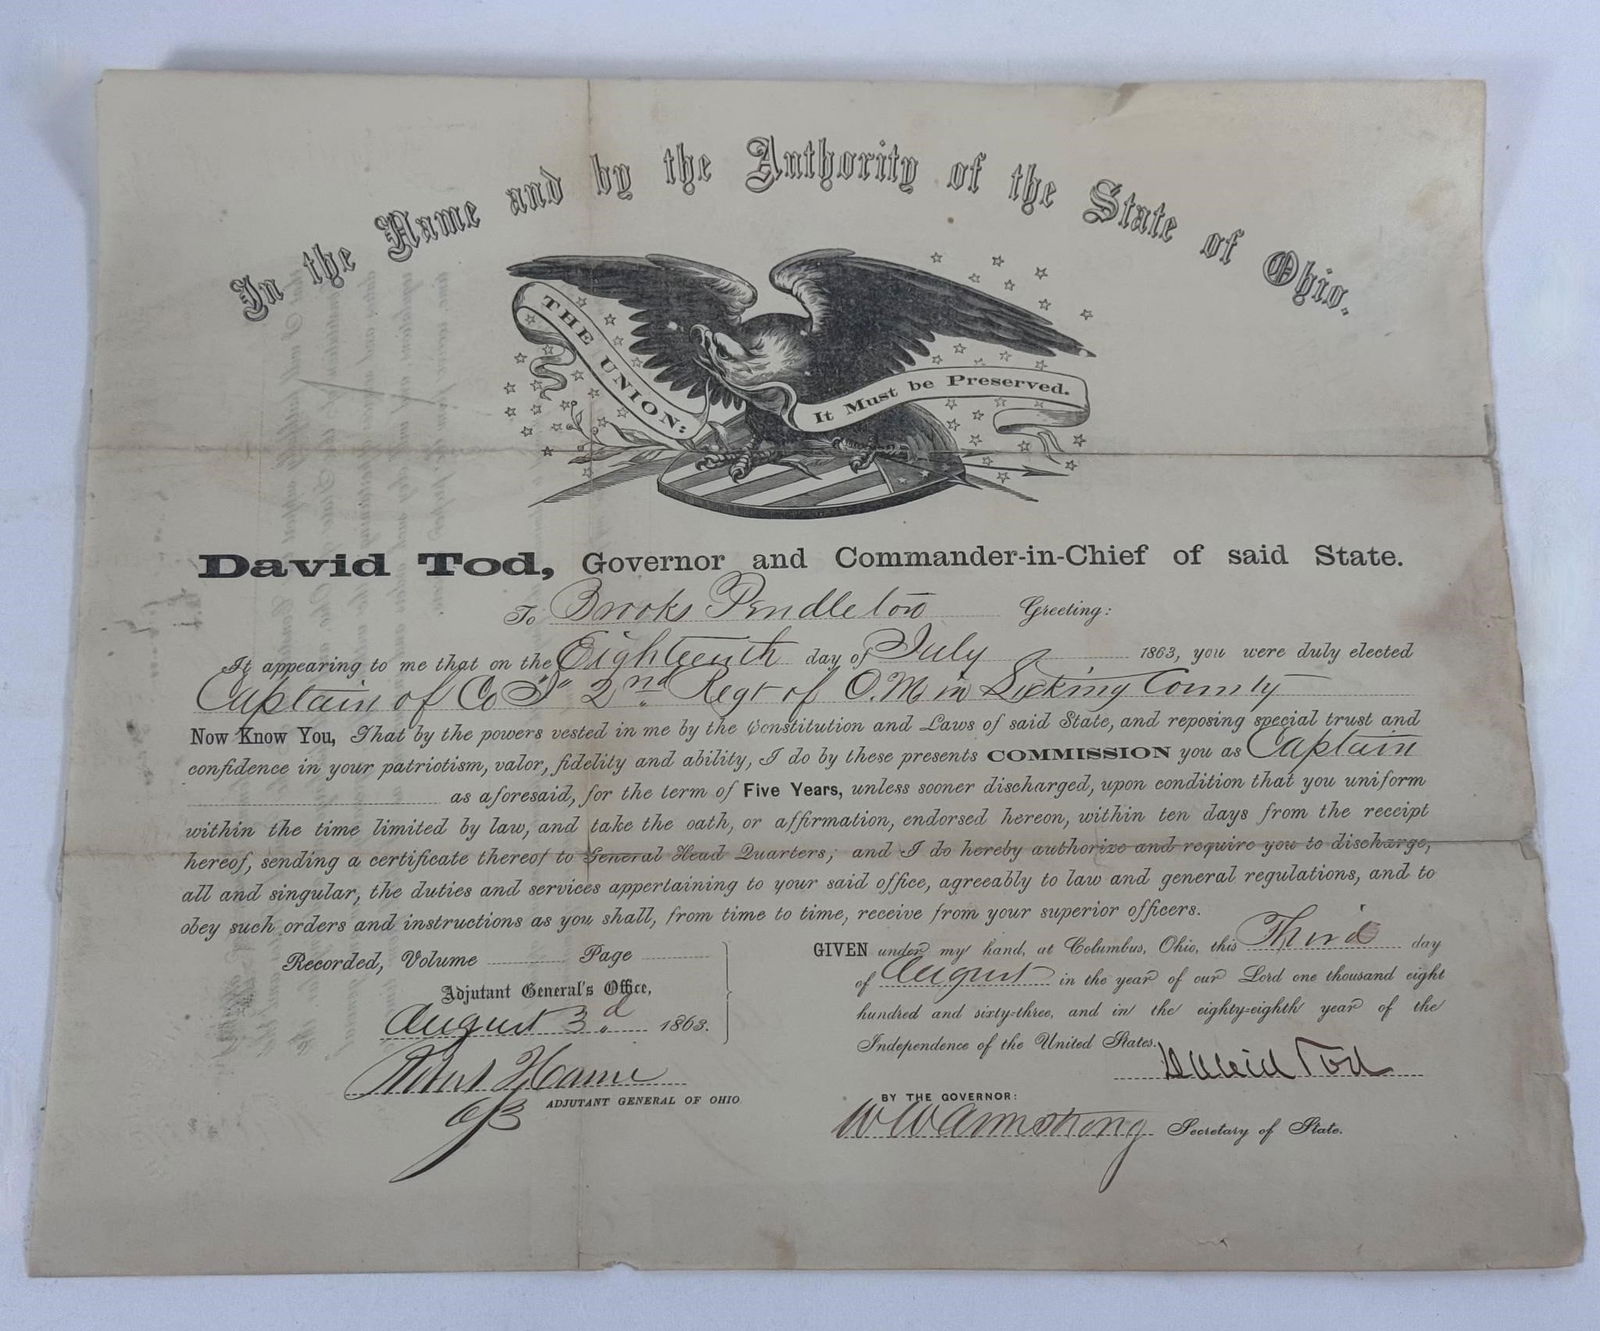 In the Name and by the Authority of the State of Ohio.
THE UNION:
It Must be Preserved.
David Tod, Governor and Commander-in-Chief of said State.
To Brooks Pendleton Greeting:
It appearing to me that on the Eighteenth day of July 1863, you were duly elected
Captain of Co 2nd Regt of O.M in Licking County
Now Know You, That by the powers vested in me by the Constitution and Laws of said State, and reposing special trust and
confidence in your patriotism, valor, fidelity and ability, I do by these presents COMMISSION you as Captain
as aforesaid, for the term of Five Years, unless sooner discharged, upon condition that you uniform
within the time limited by law, and take the oath, or affirmation, endorsed hereon, within ten days from the receipt
hereof, sending a certificate thereof to General Head Quarters; and I do hereby authorize and require you to discharge,
all and singular, the duties and services appertaining to your said office, agreeably to law and general regulations, and to
obey such orders and instructions as you shall, from time to time, receive from your superior officers.
Recorded, Volume Page
Adjutant General's Office,
August 3d 1863.
ADJUTANT GENERAL OF OHIO
GIVEN under my hand, at Columbus, Ohio, this Third day
of August in the year of our Lord one thousand eight
hundred and sixty-three, and in the eighty-eighth year of the
Independence of the United States.
David Tod
BY THE GOVERNOR:
W W Armstrong Secretary of State.